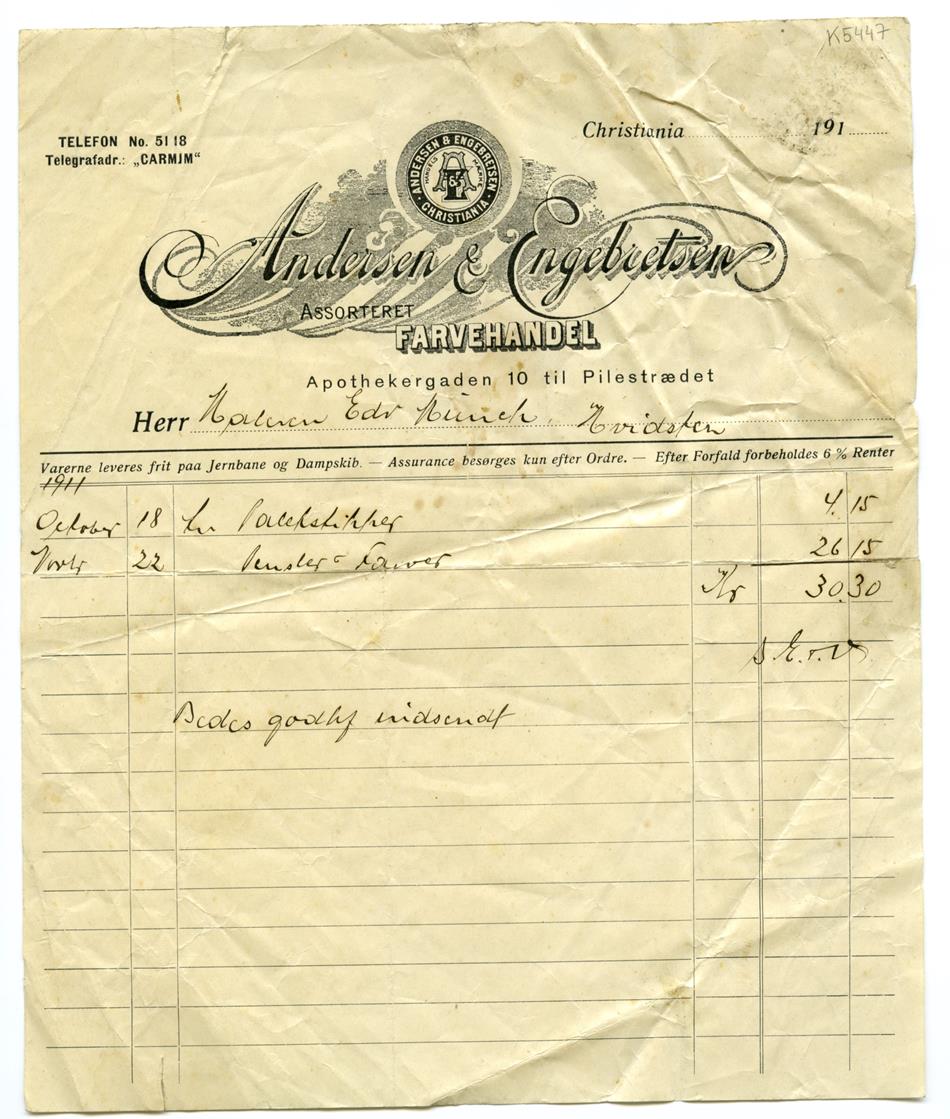 K5447
TELEFON No. 5118
Telegrafadr.: „CARMIM“
Christiania 191
ANDERSEN & ENGEBRETSEN
HANDELS MÆRKE
A & E
CHRISTIANIA
Andersen & Engebretsen
ASSORTERET
FARVEHANDEL
Apothekergaden 10 til Pilestrædet
Herr Maleren Edv Munch, Hvidsten
Varerne leveres frit paa Jernbane og Dampskib. — Assurance besørges kun efter Ordre. — Efter Forfald forbeholdes 6 % Renter
1911
October 18 4.15
Novbr 22 Pensler & Farver 26 15
Kr 30.30
Bedes godhf indsendt